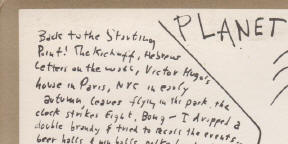 PLANET
Back to the Starting
Point! The Kichoff, Hebrew
Letters on the wall, Victor Hugo's
house in Paris, NYC in early
autumn, leaves flying in the park, the
clock strikes Eight, Bong — I dropped a
double brandy & tried to recall the events...
beer halls &